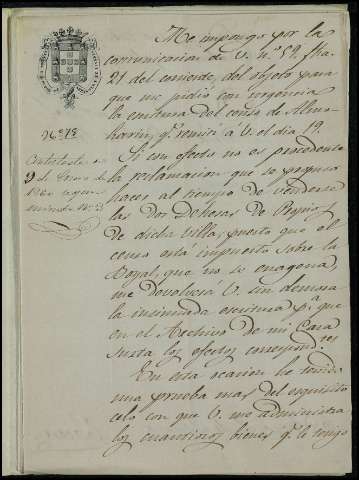 Me impongo por la
comunicacion de V. nº 59. fha.
21 del corriente, del objeto para
que me pidió con urgencia
la escritura del censo de Almo-
harin, q.e remití a V. el dia 19.
Si con efecto no es procedente
la reclamacion que se propuso
hacer, al tiempo de venderse
las Dos Dehesas de Propios
de dicha villa, puesto que el
censo está impuesto sobre la
Boyal, que no se enagena,
me devolverá V. sin demora
la insinuada escritura p.a que
en el Archivo de mi Casa
surta los efectos correspond.tes
En esta ocasion he tenido
una prueba mas del esquisito
celo con que V. me administra
los cuantiosos bienes q.e le tengo
Nº 78
Contestada en
9 de Enero de